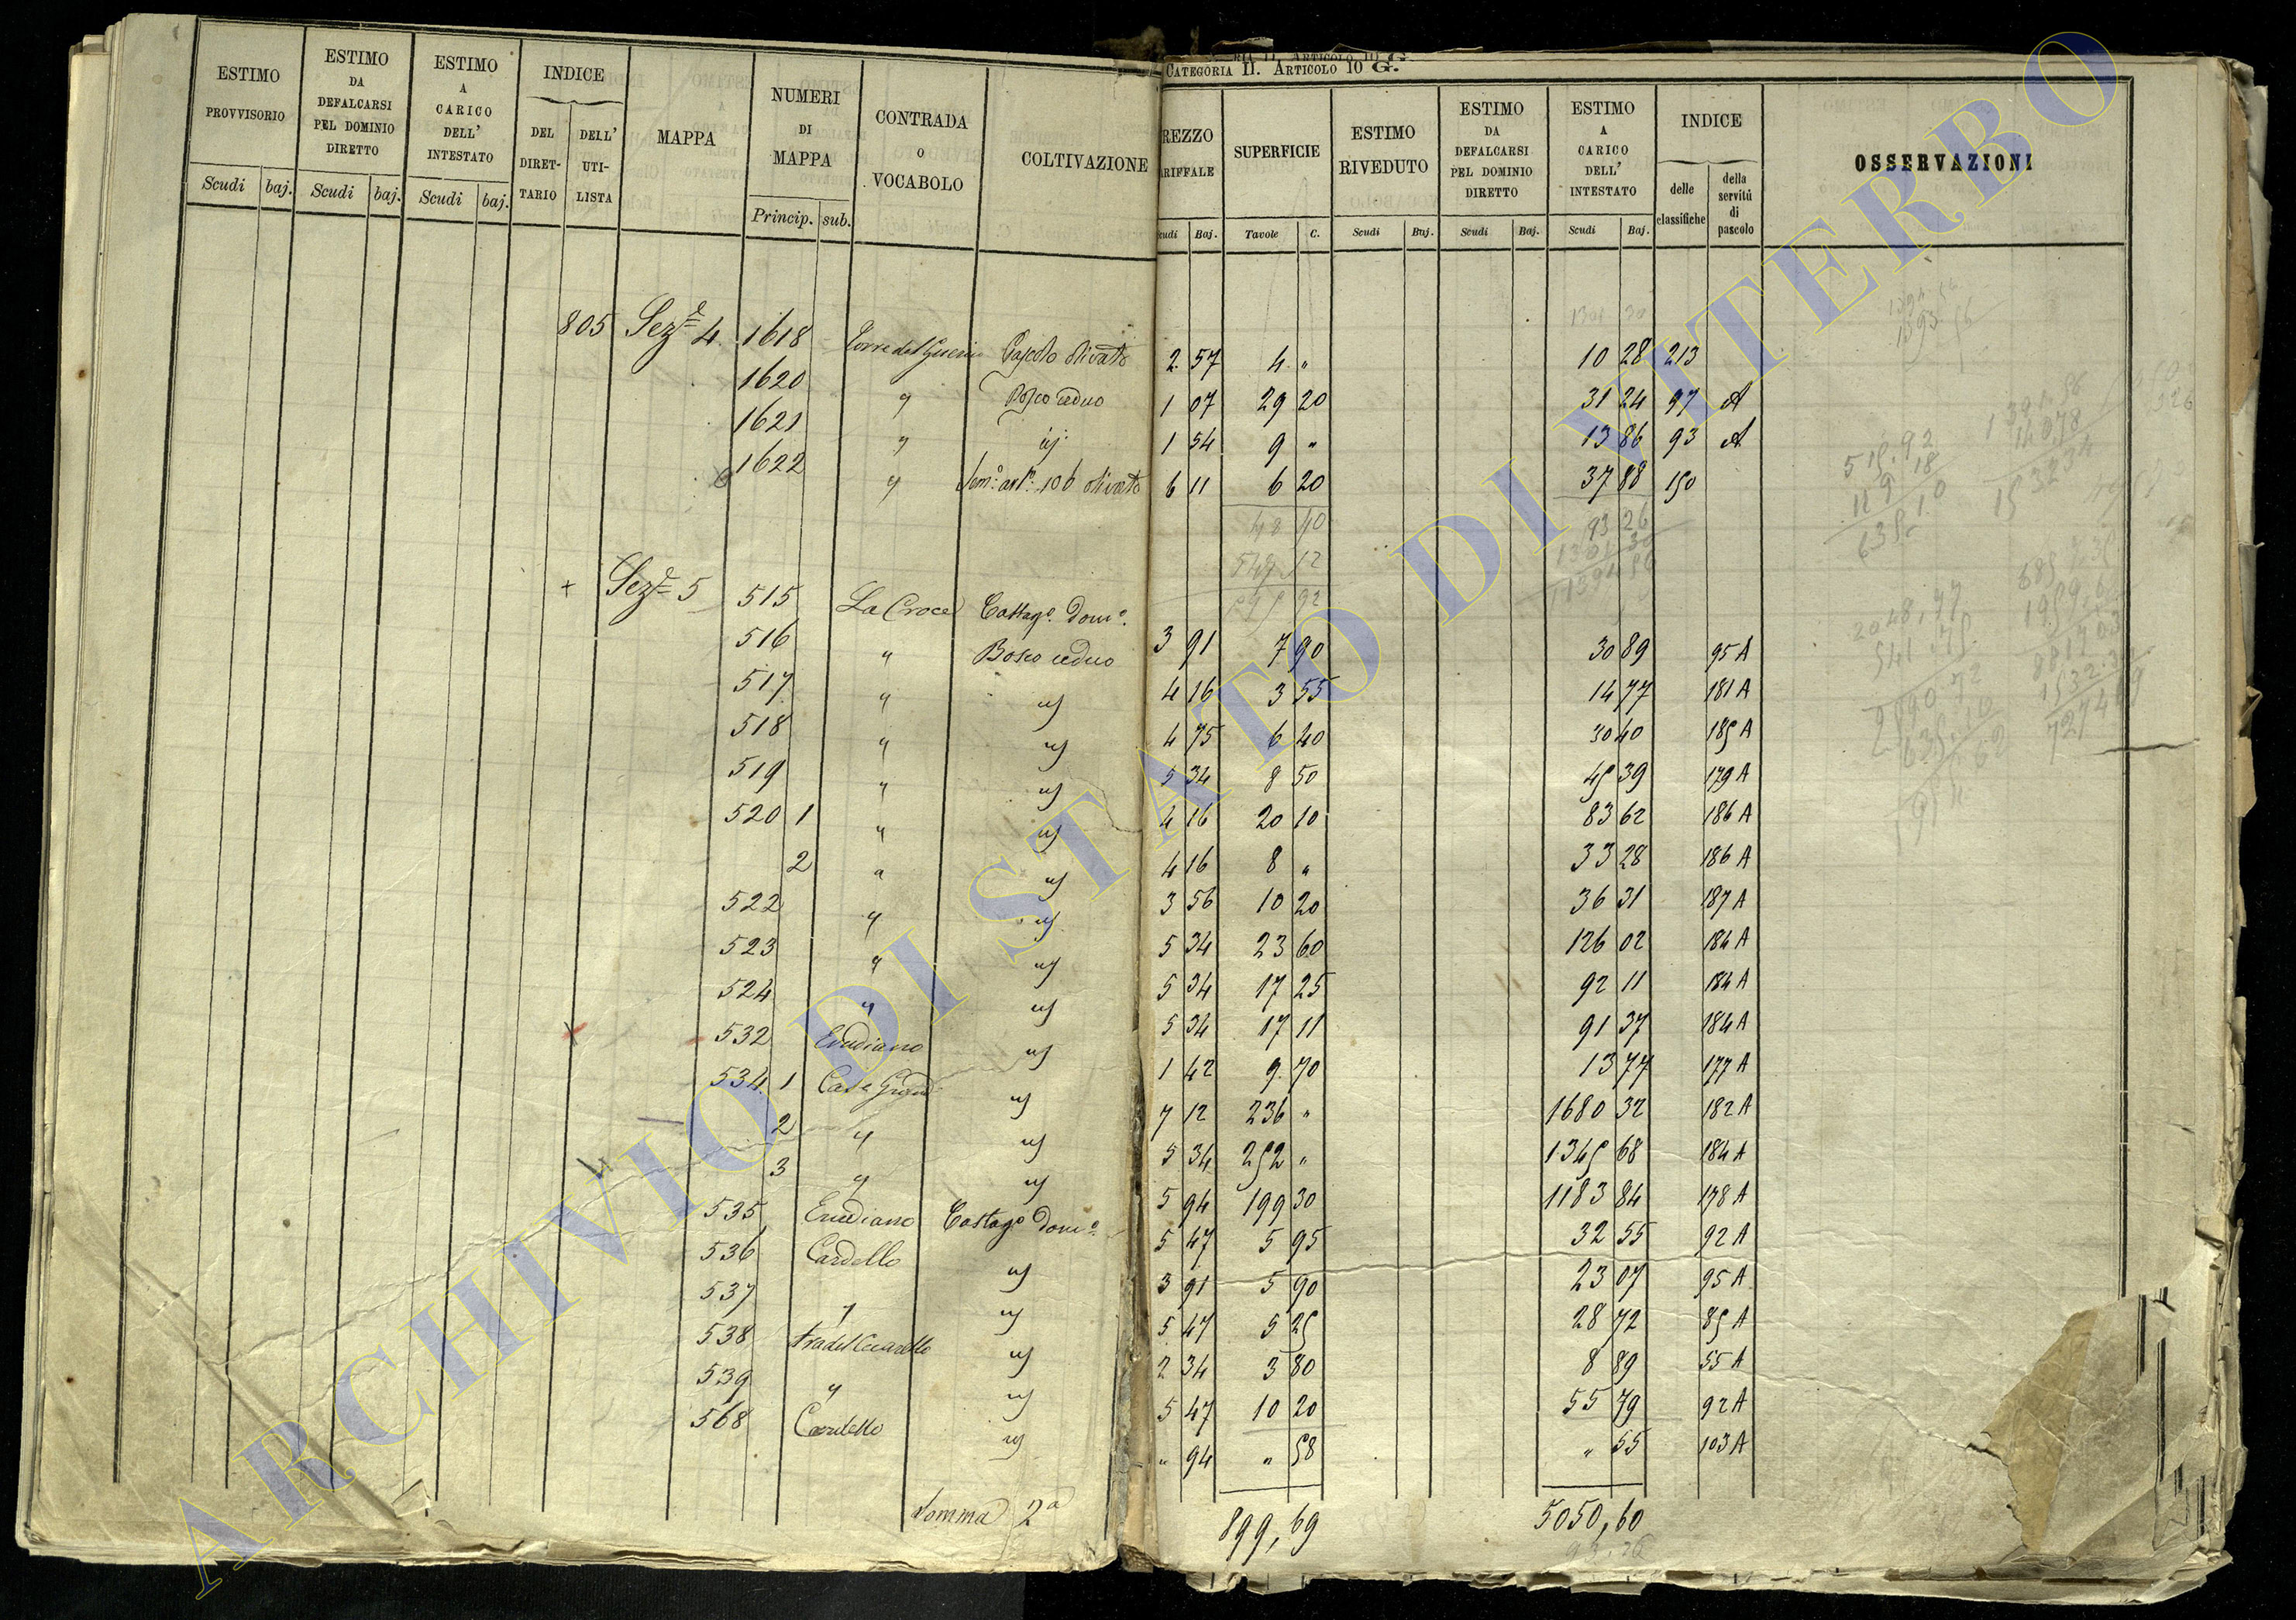 CATEGORIA II. ARTICOLO 10 G.
ESTIMO PROVVISORIO Scudi baj. | ESTIMO DA DEFALCARSI PEL DOMINIO DIRETTO Scudi baj. | ESTIMO A CARICO DELL' INTESTATO Scudi baj. | INDICE DEL DIRETTARIO DELL' UTILISTA | MAPPA | NUMERI DI MAPPA Princip. sub. | CONTRADA O VOCABOLO | COLTIVAZIONE | REZZO RIFFALE cudi Baj. | SUPERFICIE Tavole C. | ESTIMO RIVEDUTO Scudi Baj. | ESTIMO DA DEFALCARSI PEL DOMINIO DIRETTO Scudi Baj. | ESTIMO A CARICO DELL' INTESTATO Scudi Baj. | INDICE delle classifiche della servitù di pascolo | OSSERVAZIONI
805 Sez.e 4 1618 Torre del Guerin Pascolo olivato 2 57 4 " 10 28 213
1620 " Bosco ceduo 1 07 29 20 31 24 97 A
1621 " id 1 54 9 " 13 86 93 A
1622 " Sem.o art.o 106 olivato 6 11 6 20 37 88 150
48 40 93 26
549 52 1301 30
1394 56
+ Sez.e 5 515 La Croce Castag.o Dom.o 3 91 7 90 30 89 95 A
516 " Bosco ceduo 4 16 3 55 14 77 181 A
517 " id 4 75 6 40 30 40 185 A
518 " id 5 34 8 50 45 39 179 A
519 " id 4 16 20 10 83 62 186 A
520 1 " id 4 16 8 " 33 28 186 A
2 " id 3 56 10 20 36 31 187 A
522 " id 5 34 23 60 126 02 184 A
523 " id 5 34 17 25 92 11 184 A
524 " id 5 34 17 11 91 37 184 A
532 id 1 42 9 70 13 77 177 A
534 1 id 7 12 236 " 1680 32 182 A
2 " id 5 34 252 " 1345 68 184 A
3 " id 5 94 199 30 1183 84 178 A
535 Castag.o Dom.o 5 47 5 95 32 55 92 A
536 Cardello id 3 91 5 90 23 07 95 A
537 " id 5 47 5 25 28 72 85 A
538 id 2 34 3 80 8 89 55 A
539 " id 5 47 10 20 55 79 92 A
568 Cardello id " 94 " 58 " 55 103 A
Somma 2a 899,69 5050,60
93.26
ARCHIVIO DI STATO DI VITERBO